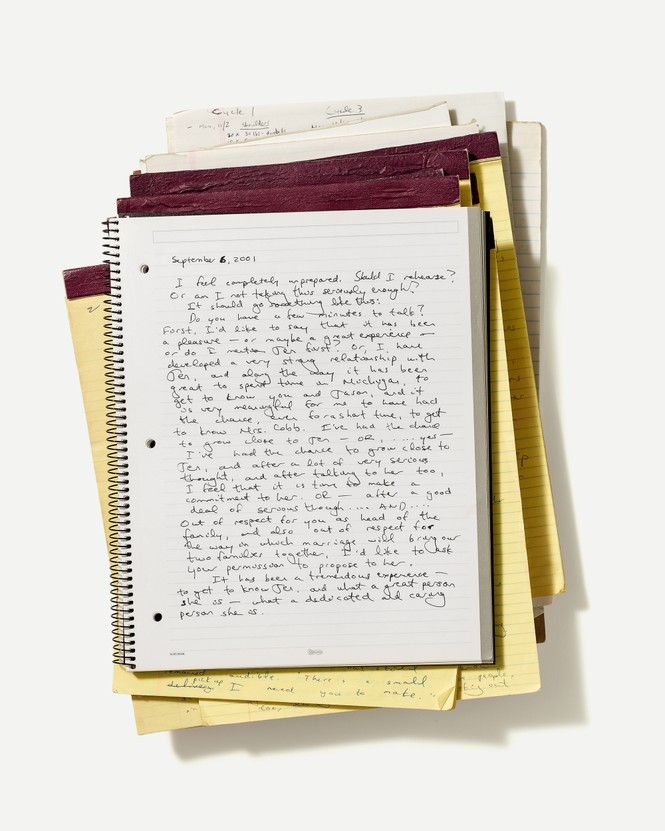 Cycle 1
Cycle 3
September 6, 2001
I feel completely unprepared. Should I rehearse?
Or am I not taking this seriously enough?
It should go something like this:
Do you have a few minutes to talk?
First, I'd like to say that it has been
a pleasure — or maybe a great experience —
or do I mention Jen first? Or, I have
developed a very strong relationship with
Jen, and along the way it has been
great to spend time in Michigan, to
get to know you and Jason, and it
is very meaningful for me to have had
the chance, even for a short time, to get
to know Mrs. Cobb. I've had the chance
to grow close to Jen — OR, ..... yes —
I've had the chance to grow close to
Jen, and after a lot of very serious
thought, and after talking to her too,
I feel that it is time to make a
commitment to her. OR — after a good
deal of serious though.... AND....
Out of respect for you as head of the
family, and also out of respect for
the way in which marriage will bring our
two families together, I'd like to ask
your permission to propose to her.
It has been a tremendous experience —
to get to know Jen, and what a great person
she is — what a dedicated and caring
person she is.
pick up audible. "There is a small
delivery I need you to make."
people,
out